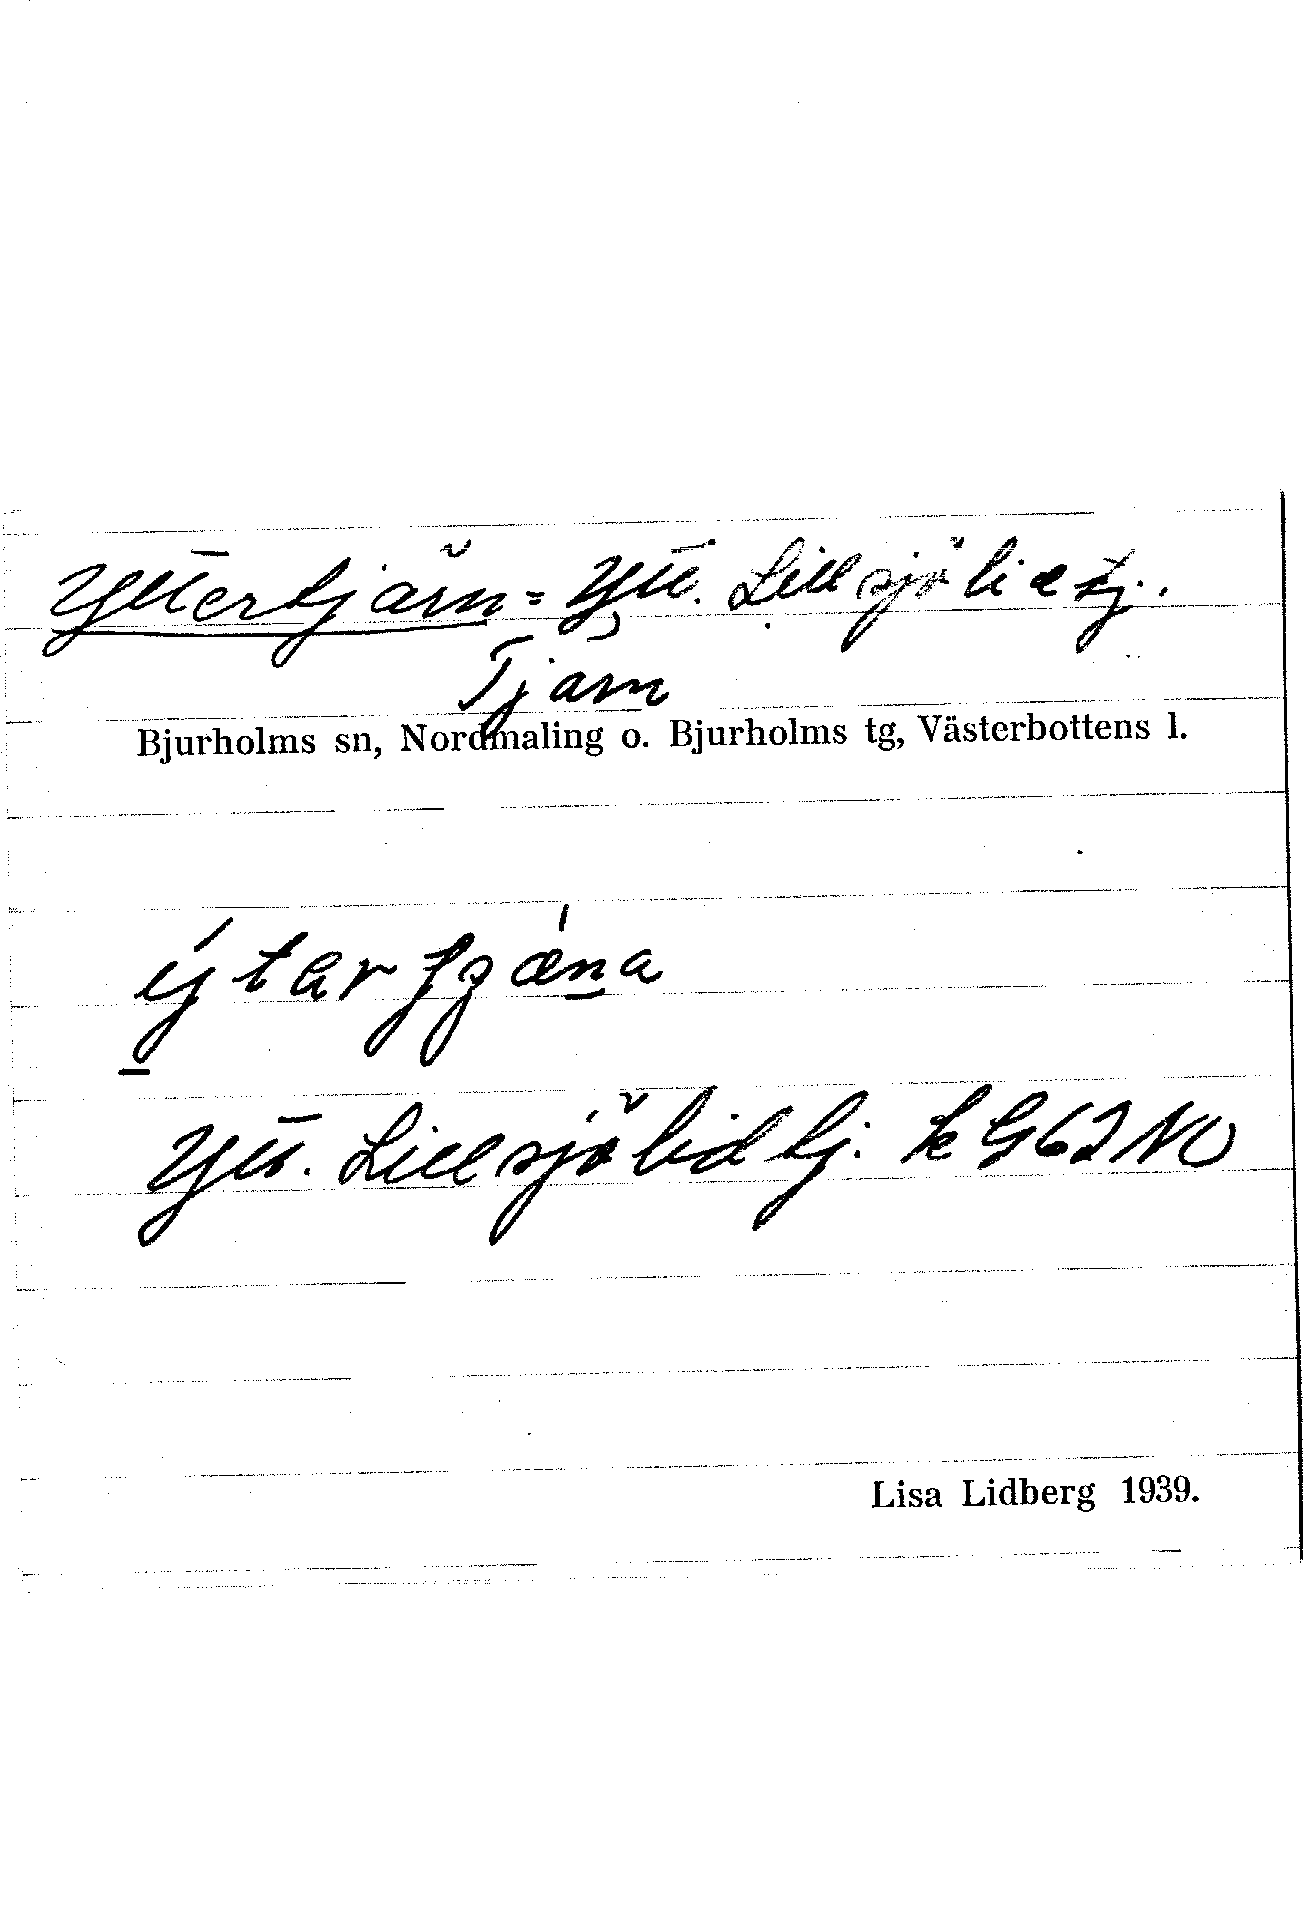 Yttertjärn = Ytt. Lillsjölidtj.
Tjärn
Bjurholms sn, Nordmaling o. Bjurholms tg, Västerbottens l.
Ytt. Lillsjölidtj. k G62NO
Lisa Lidberg 1939.